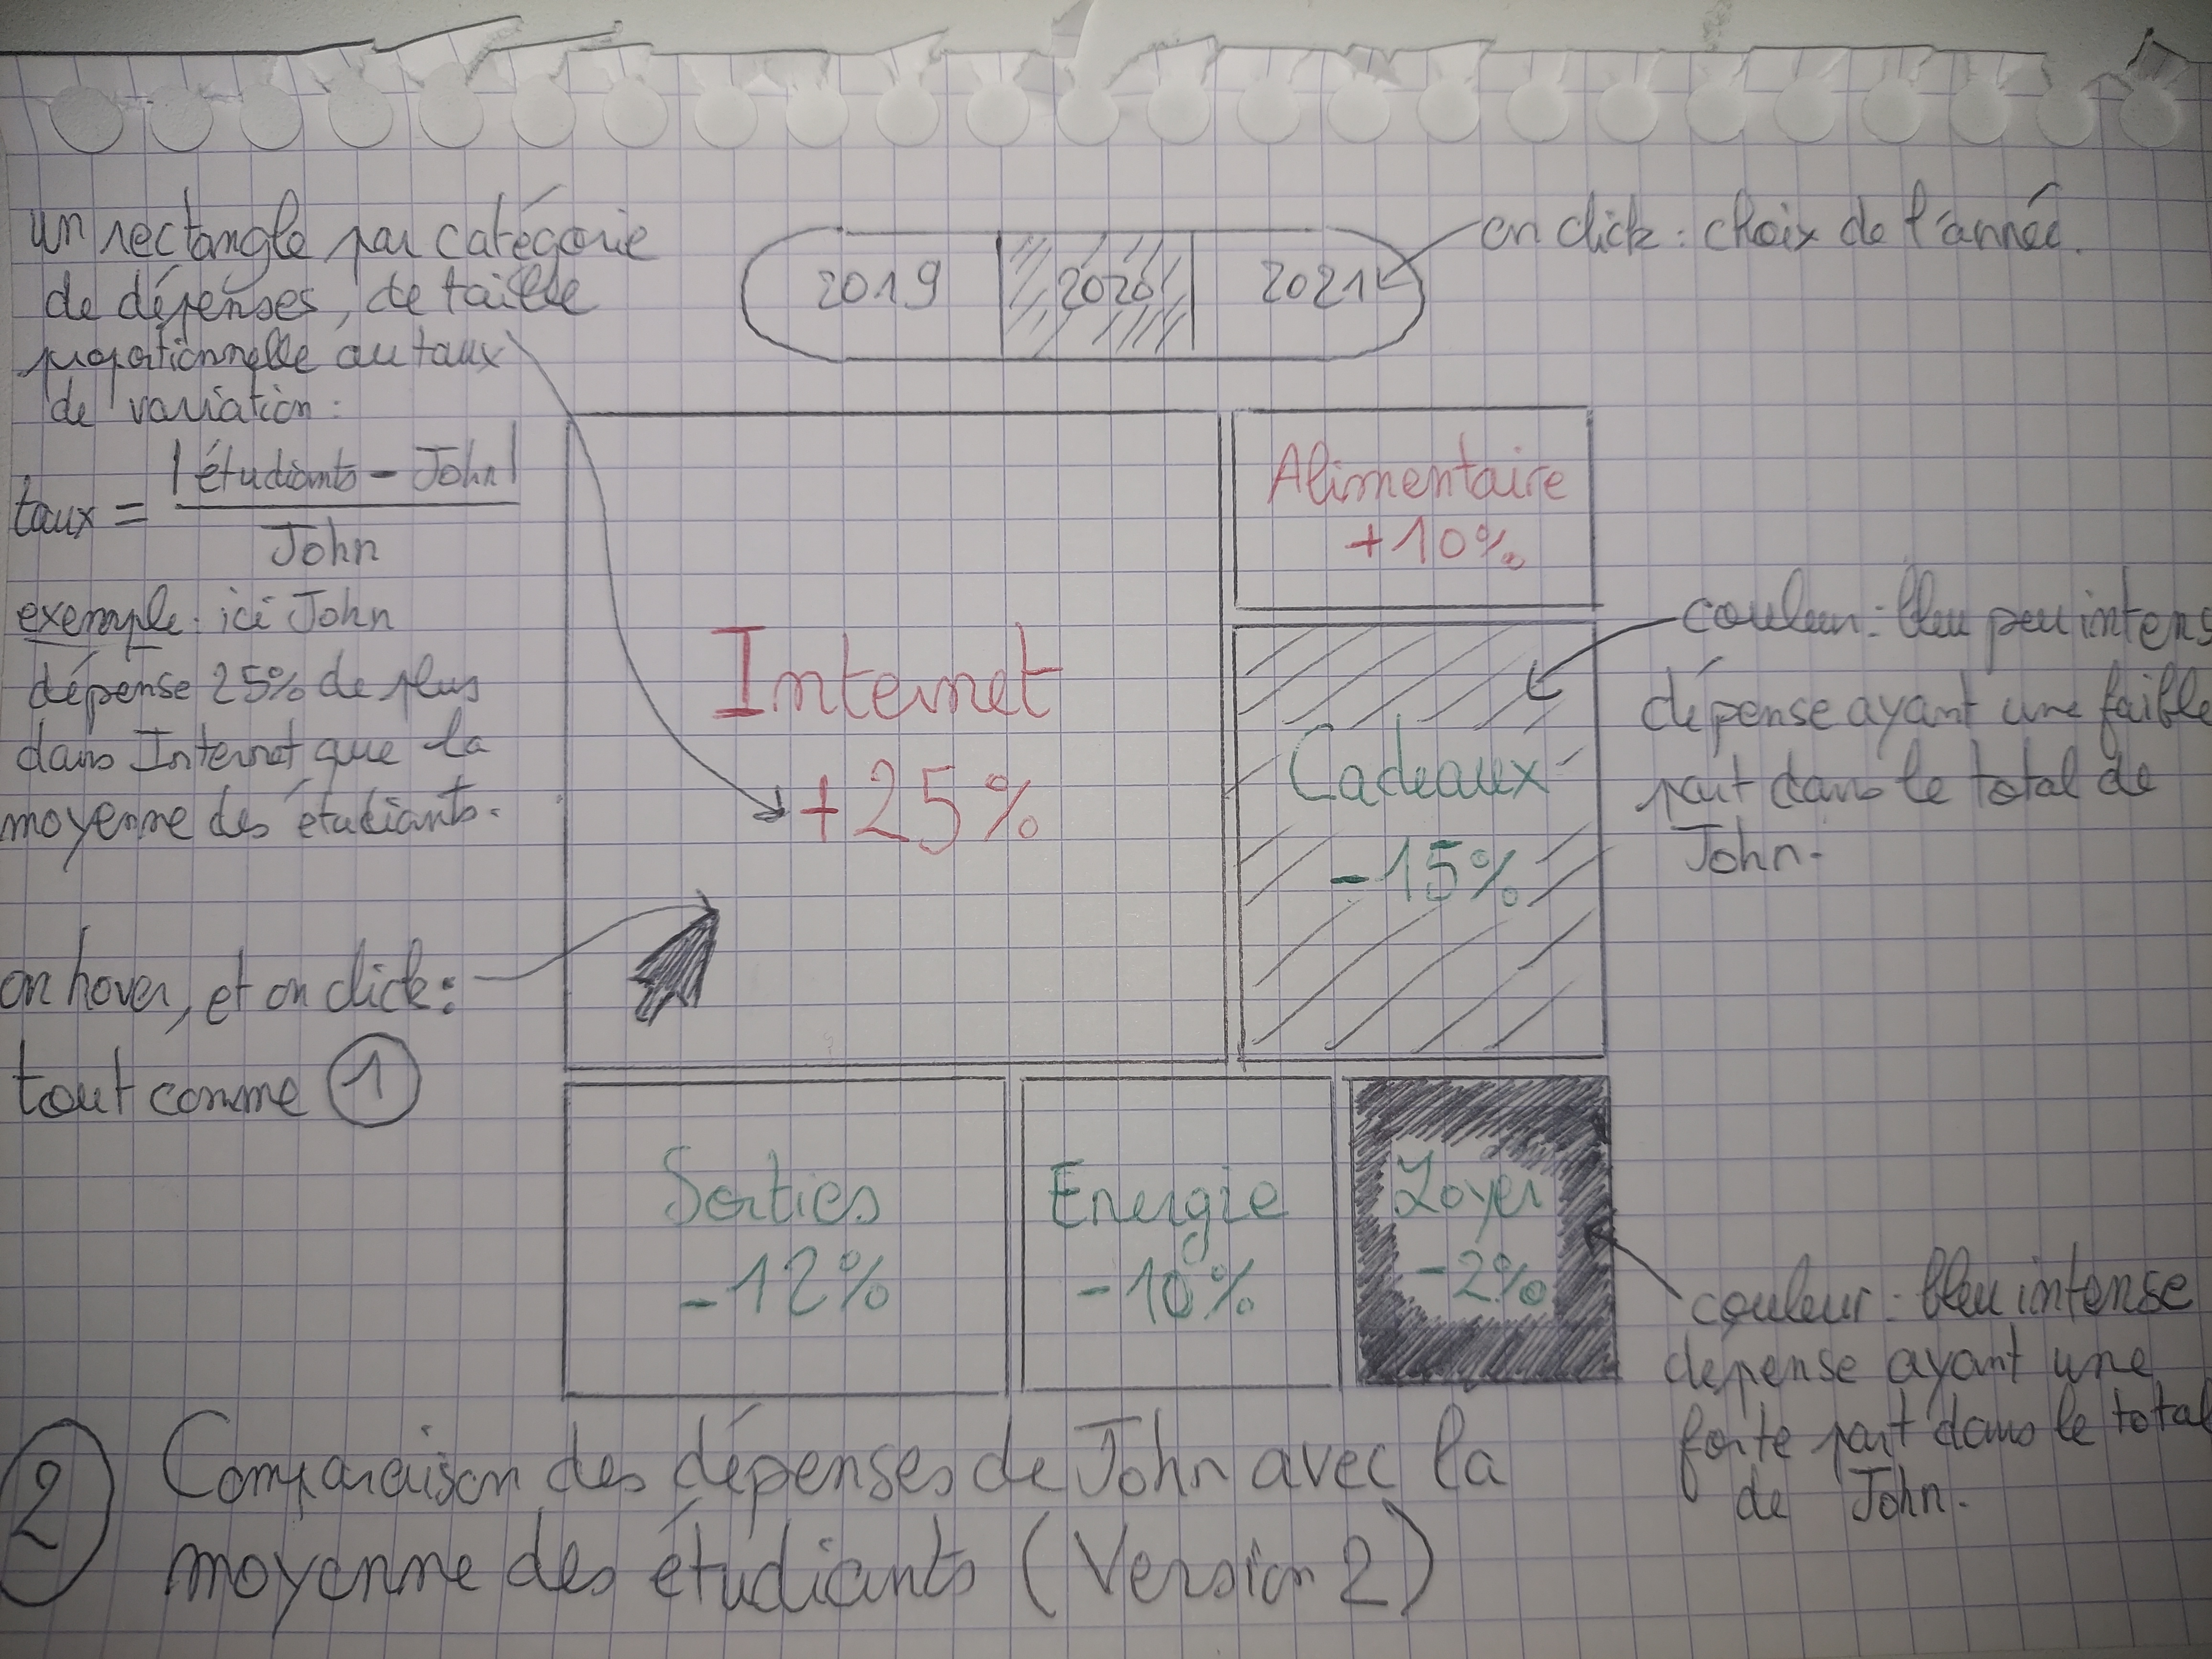 un rectangle par catégorie
de dépenses, de taille
proportionnelle au taux
de variation :
taux = |étudiants - John|
John
exemple : ici John
dépense 25% de plus
dans Internet que la
moyenne des étudiants.
on hover, et on click :
tout comme 1
2019 2020 2021
on click : choix de l'année.
Internet
+25%
Alimentaire
+10%
Cadeaux
-15%
Sorties
-12%
Energie
-10%
Loyer
-2%
couleur : bleu peu intens
dépense ayant une faible
part dans le total de
John.
couleur : bleu intense
depense ayant une
forte part dans le total
de John.
2 Comparaison des dépenses de John avec la
moyenne des étudiants (Version 2)